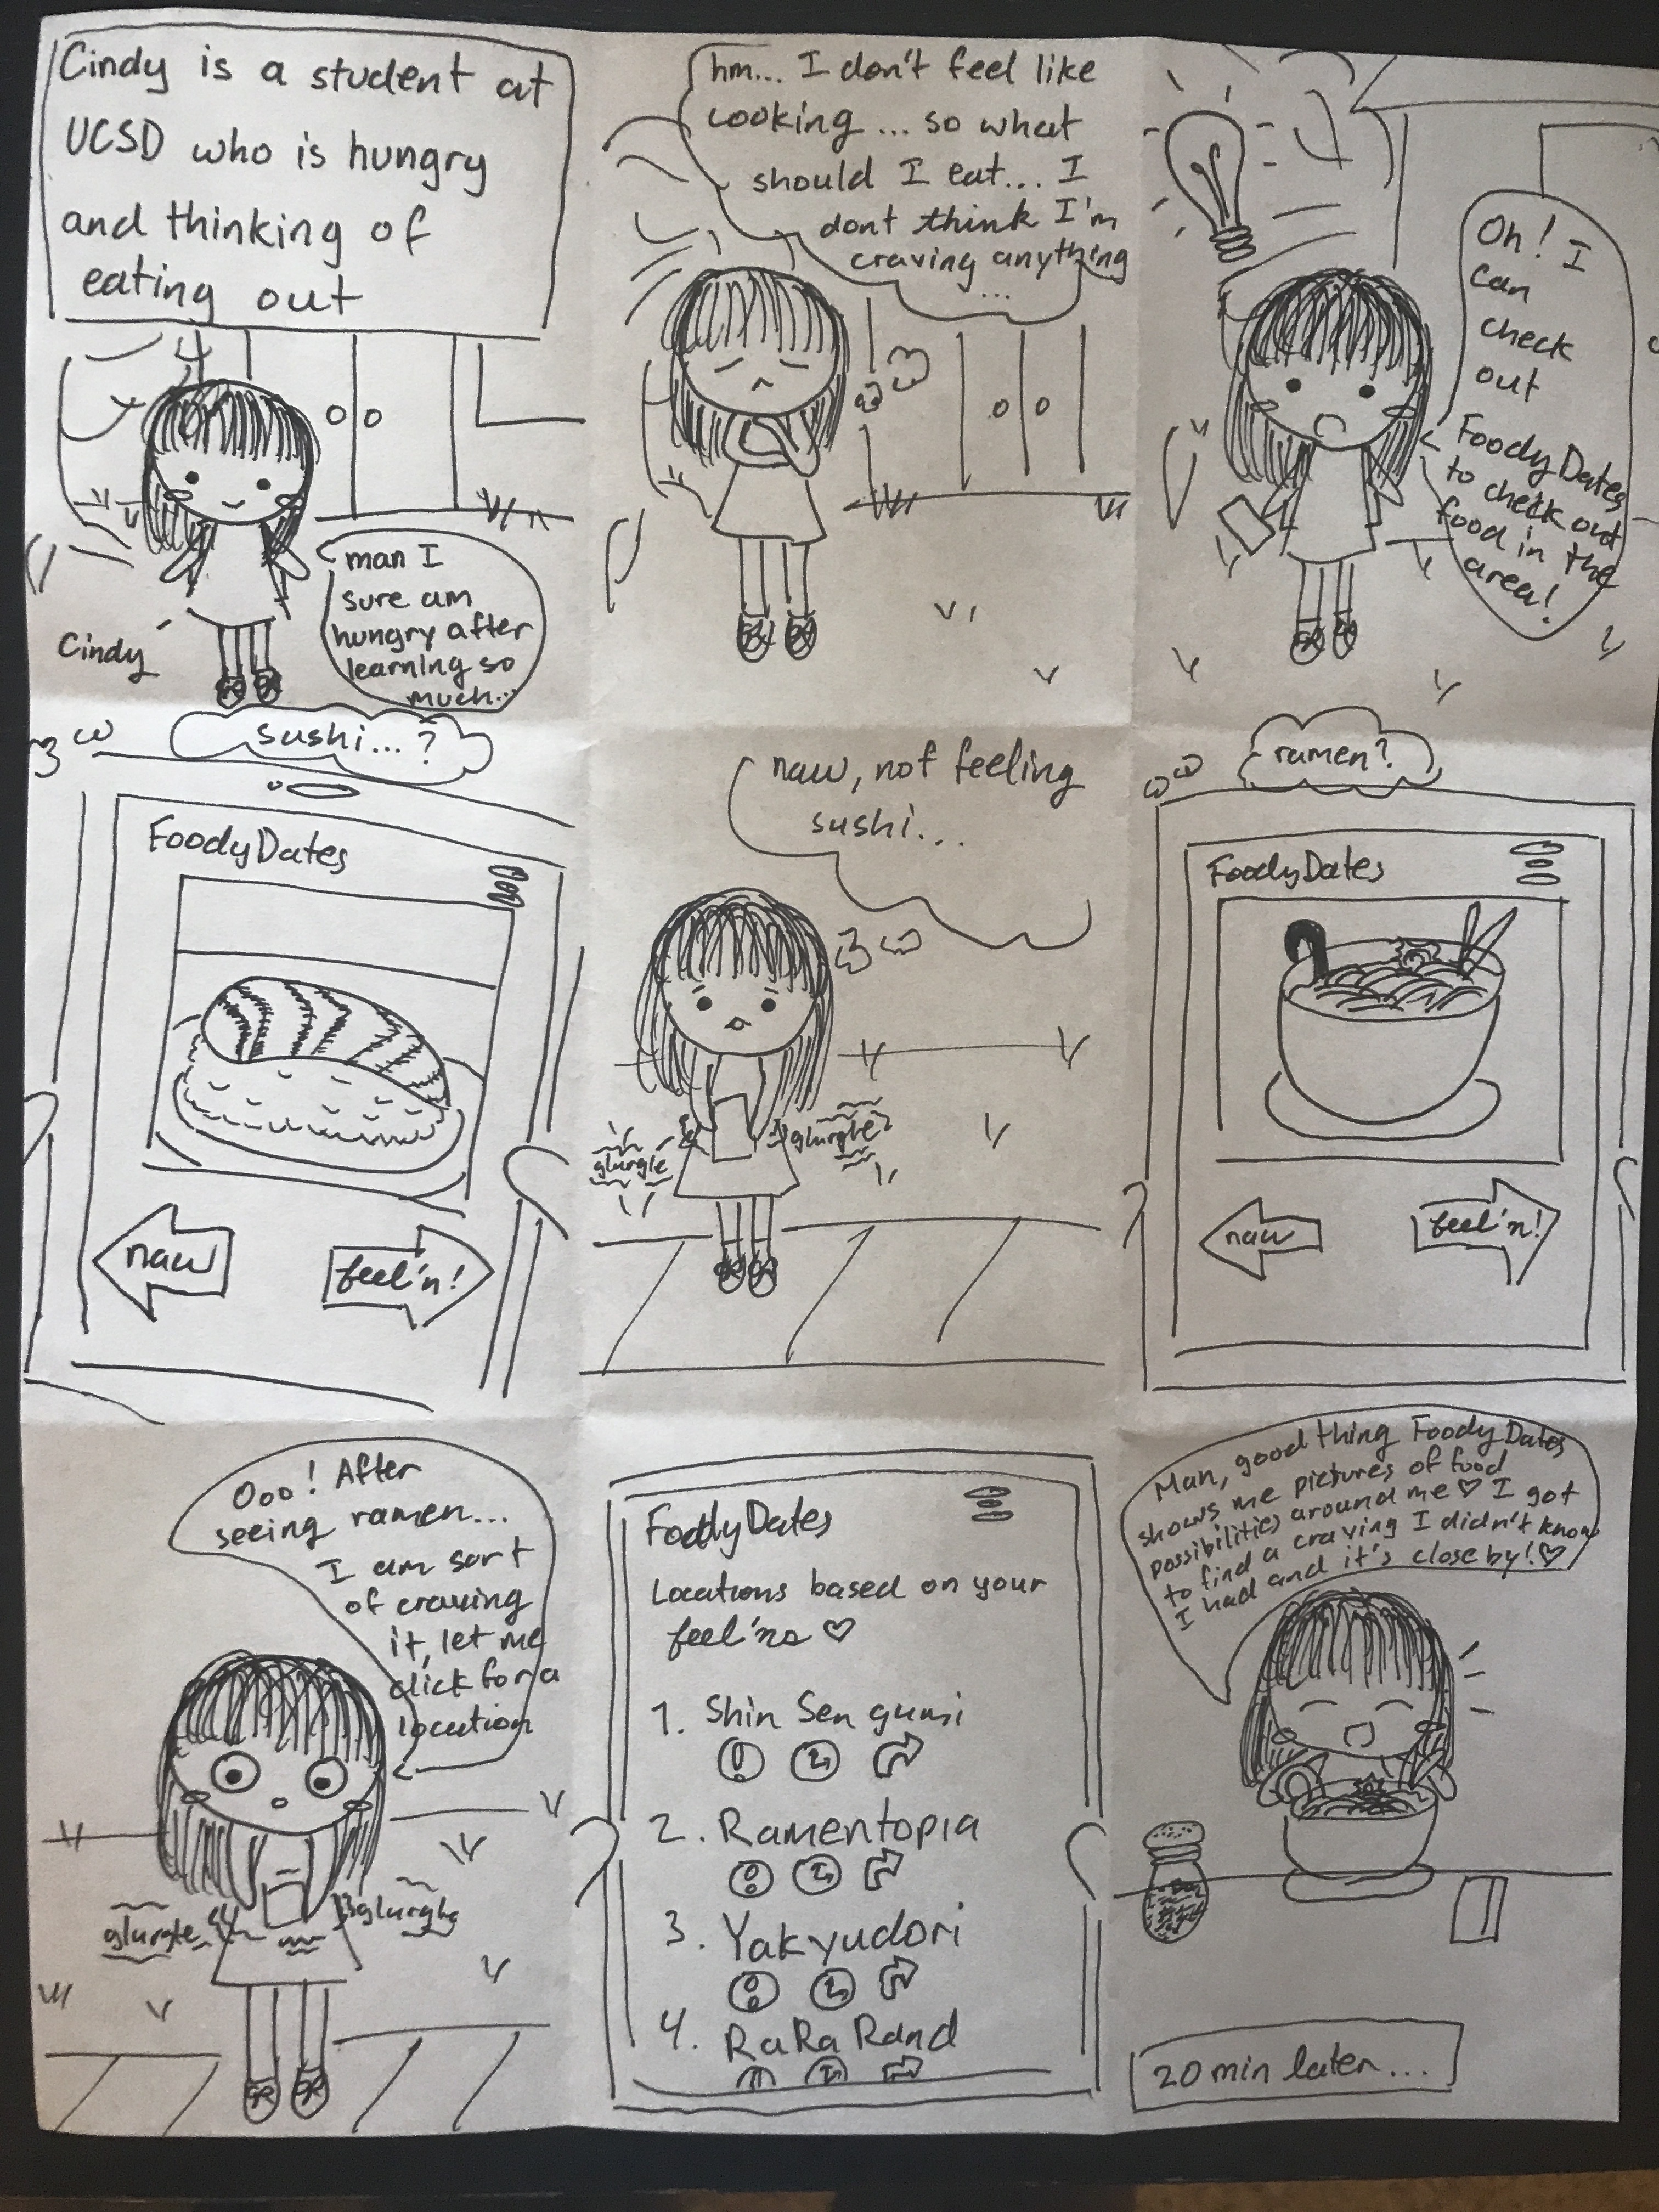 Cindy is a student at
UCSD who is hungry
and thinking of
eating out
Cindy
man I
sure am
hungry after
learning so
much...
hm... I don't feel like
cooking... so what
should I eat... I
dont think I'm
craving anything
...
Oh! I
can
check
out
FoodyDates
to check out
food in the
area!
sushi...?
FoodyDates
naw
feel'n!
naw, not feeling
sushi...
glurgle
glurgle
ramen?
FoodyDates
naw
feel'n!
Ooo! After
seeing ramen...
I am sort
of craving
it, let me
click for a
location
glurgle
glurgle
FoodyDates
Locations based on your
feel'ns ♡
1. Shin Sen gumi
2. Ramentopia
3. Yakyudori
4. RaRa Rand
Man, good thing FoodyDates
shows me pictures of food
possibilities around me ♡ I got
to find a craving I didn't know
I had and it's close by! ♡
20 min later...